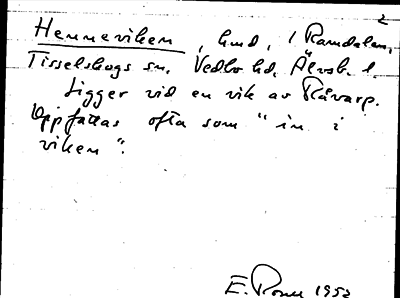 2
Henneviken, hmd, i Ramdalen,
Tisselskogs sn, Vedbo hd, Älvsb. l.
Ligger vid en vik av Råvarp.
Uppfattas ofta som "in i
viken".
E. 1952